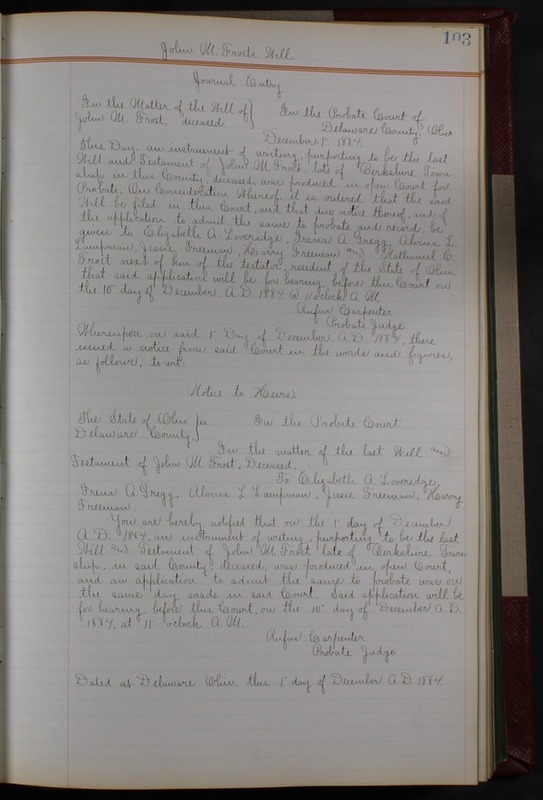 103
John M. Frost's Will
Journal Entry
In the Matter of the Will of } In the Probate Court of
John M. Frost, deceased. Delaware County, Ohio
December 1st 1884.
This Day, an instrument of writing, purporting to be the last
Will and Testament of John M. Frost, late of Berkshire Town-
ship in this County, deceased, was produced in open Court for
Probate, On Consideration Whereof, it is ordered that the said
Will be filed in this Court, and that due notice thereof, and of
the application to admit the same to probate and record, be
given to Elizabeth A. Loveridge, Irena A. Gregg, Alvina L.
Lampman, Jessie Freeman, Harry Freeman and Nathaniel C.
Frost next of kin of the testator, resident of the State of Ohio
that said application will be for hearing before this Court on
the 10th day of December, A.D. 1884 @ 11 o'clock A.M.
Rufus Carpenter
Probate Judge
Whereupon, on said 1st Day of December A.D. 1884, there
issued a notice from said Court in the words and figures,
as follows, to wit:
Notice to Heirs
The State of Ohio } ss In the Probate Court
Delaware County }
In the matter of the last Will and
Testament of John M. Frost, Deceased.
To Elizabeth A. Loveridge,
Irena A. Gregg, Alvina L. Lampman, Jessie Freeman, Harry
Freeman
You are hereby notified that on the 1st day of December
A.D. 1884, an instrument of writing, purporting to be the last
Will and Testament of John M. Frost late of Berkshire Town-
ship, in said County, deceased, was produced in open Court,
and an application to admit the same to probate was on
the same day made in said Court. Said application will be
for hearing before this Court, on the 10th day of December A.D.
1884, at 11 o'clock A.M.
Rufus Carpenter
Probate Judge
Dated at Delaware Ohio, this 1st day of December A.D. 1884.